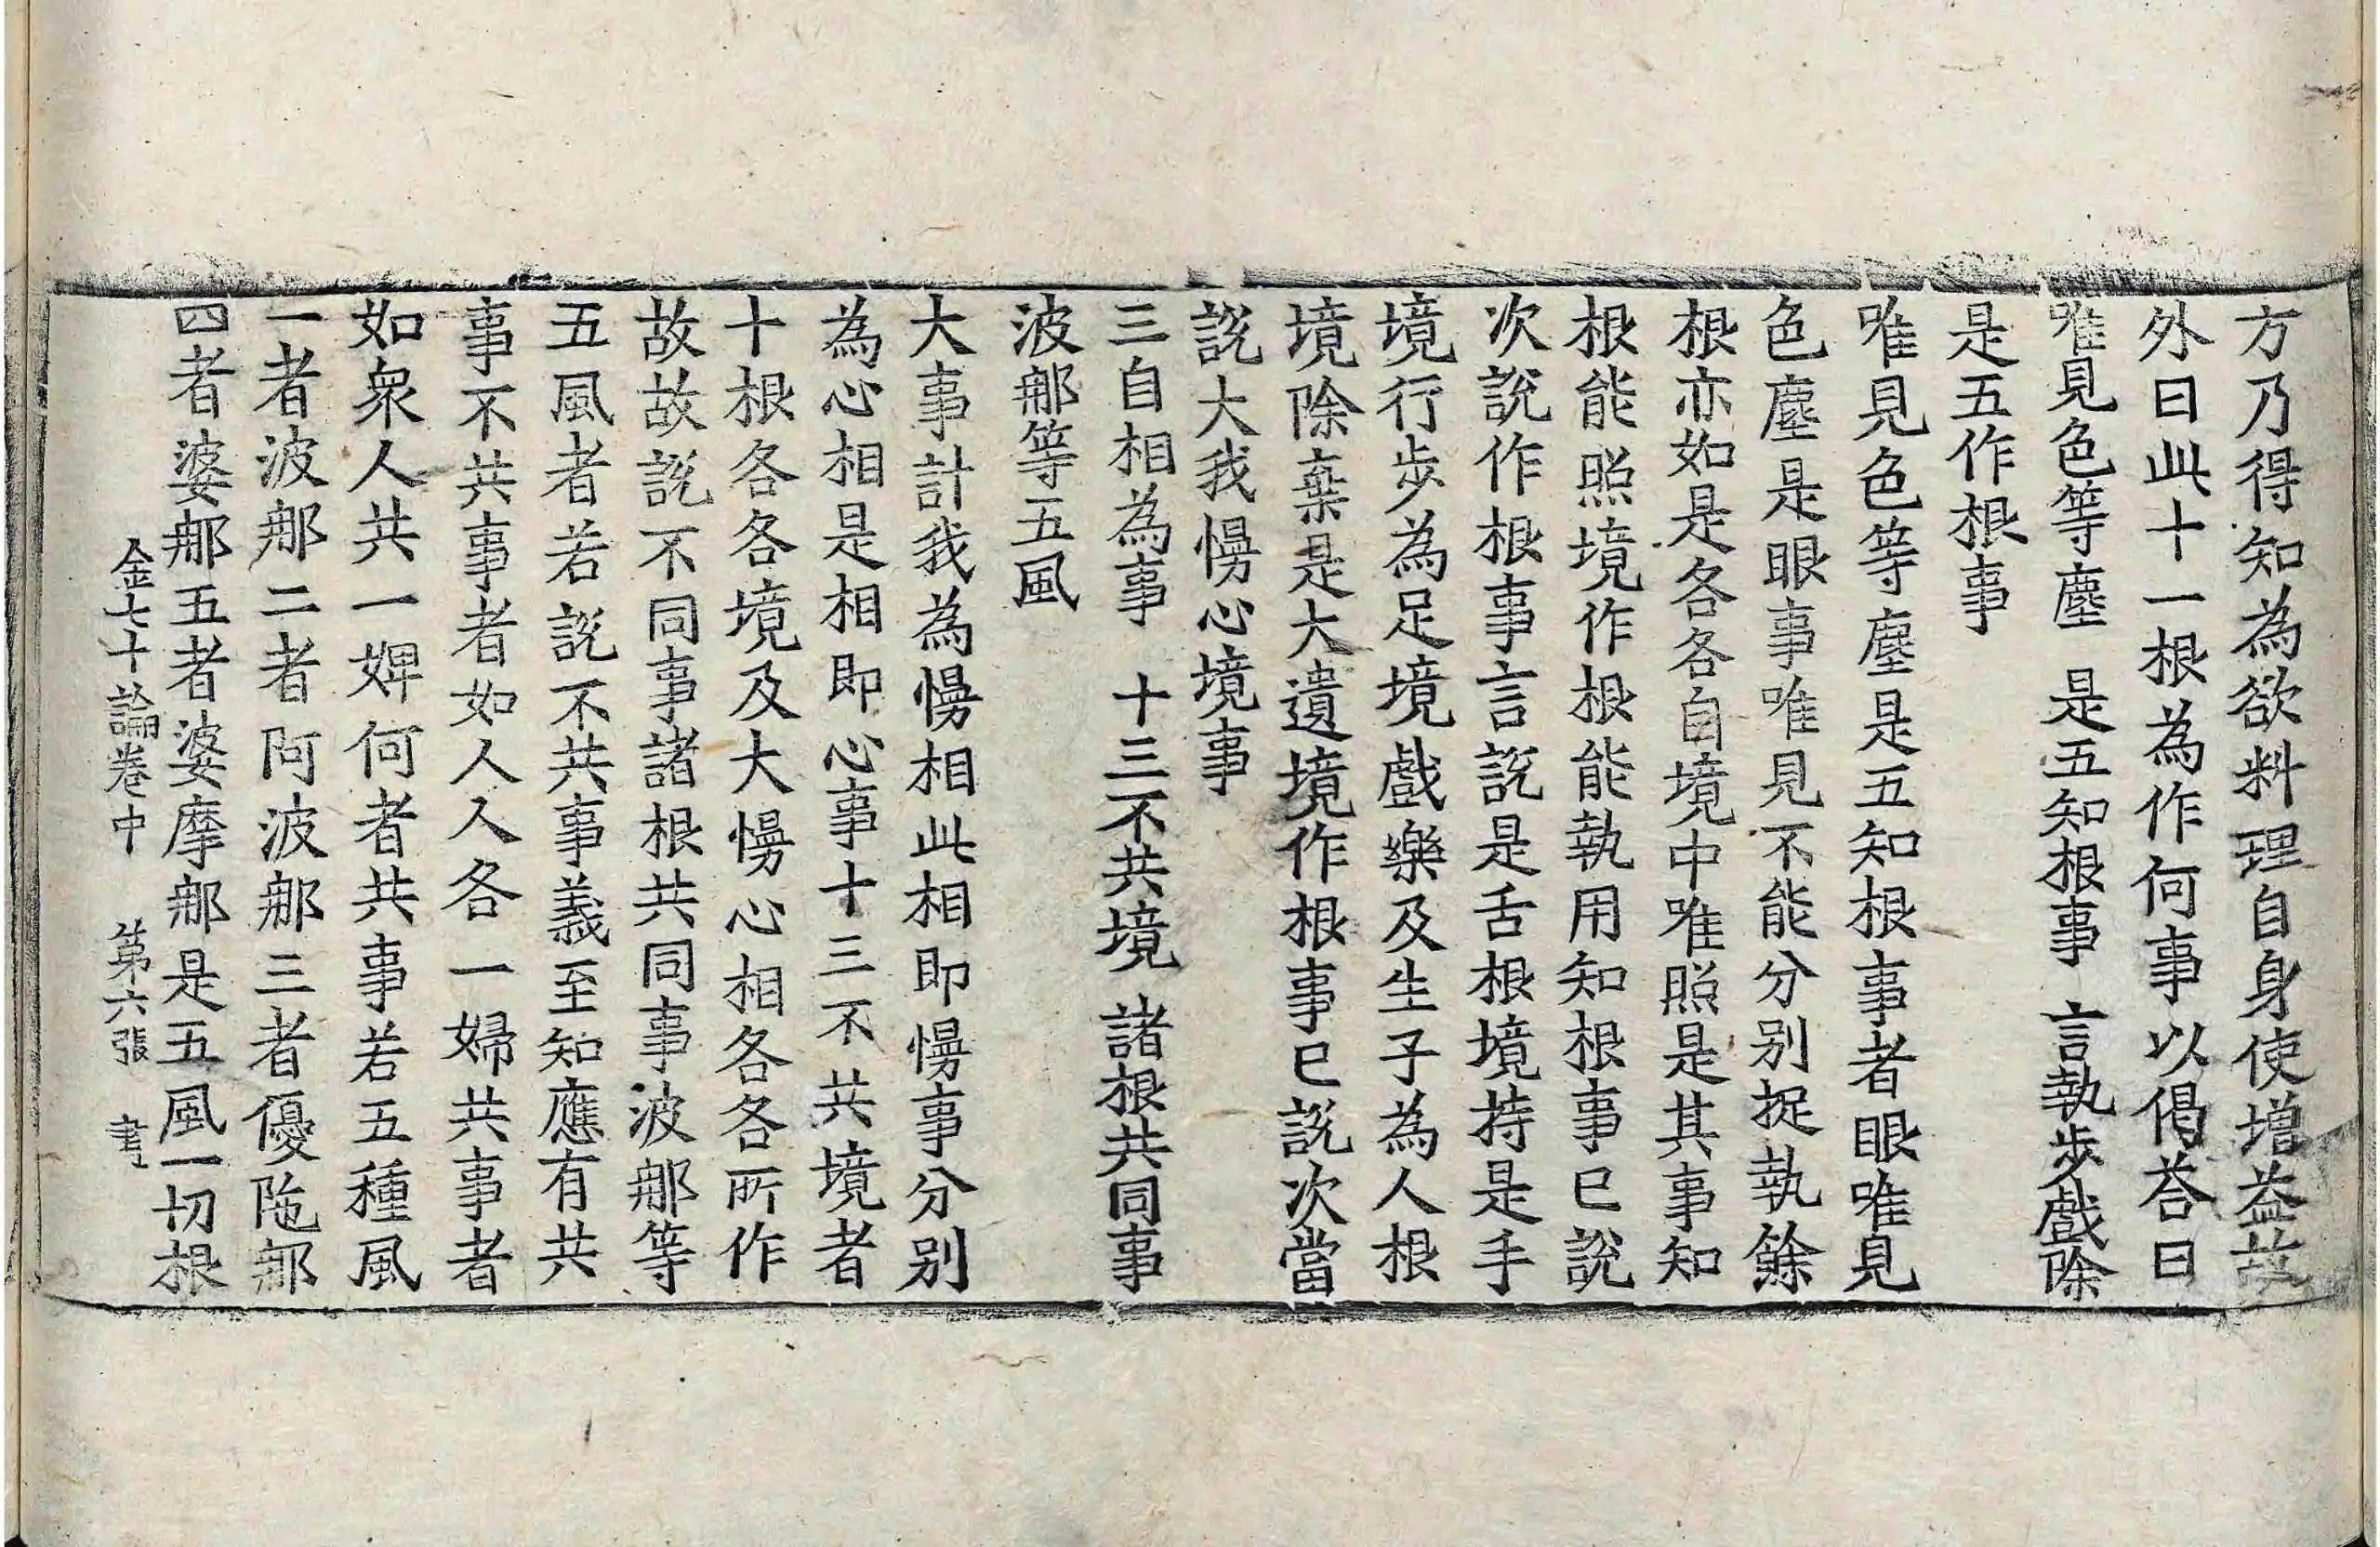 方乃得知為欲料理自身使增益故
外曰此十一根為作何事以偈荅曰
唯見色等塵　是五知根事　言執步戲除
是五作根事
唯見色等塵是五知根事者眼唯見
色塵是眼事唯見不能分别捉執餘
根亦如是各各自境中唯照是其事知
根能照境作根能執用知根事已說
次說作根事言說是舌根境持是手
境行步為足境戲樂及生子為人根
境除棄是大遺境作根事已說次當
說大我慢心境事
三自相為事　十三不共境　諸根共同事
波郍等五風
大事計我為慢相此相即慢事分别
為心相是相即心事十三不共境者
十根各各境及大慢心相各各所作
故故說不同事諸根共同事波郍等
五風者若說不共事義至知應有共
事不共事者如人人各一婦共事者
如衆人共一婢何者共事若五種風
一者波郍二者阿波郍三者優陁郍
四者婆郍五者婆摩郍是五風一切根
金七十論卷中　第六張